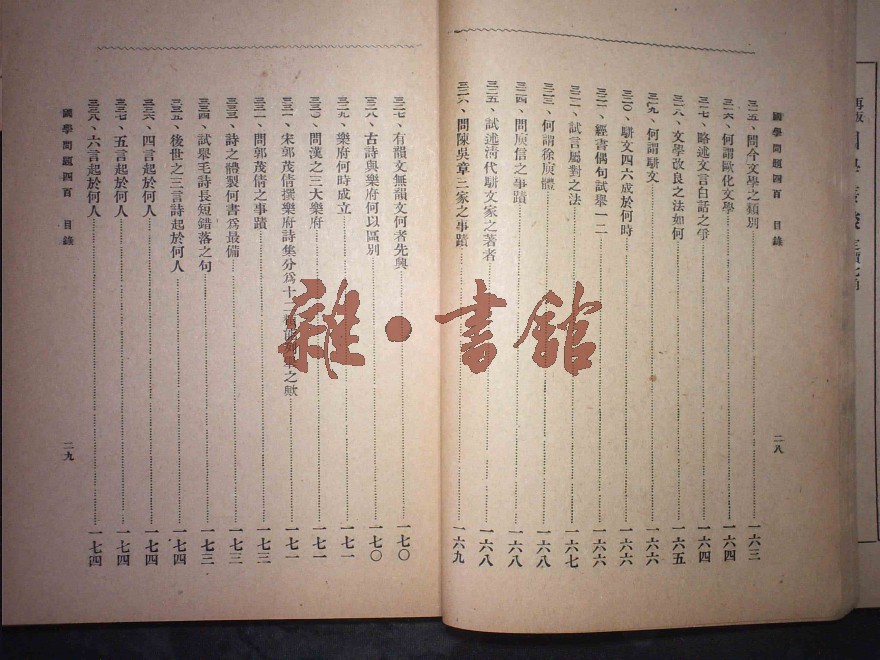 國學問題四百 目錄
二八
三一五、問今文學之類別……一六三
三一六、何謂歐化文學……一六四
三一七、略述文言白話之爭……一六四
三一八、文學改良之法如何……一六五
三一九、何謂駢文……一六六
三二〇、駢文四六成於何時……一六六
三二一、經書偶句試舉一二……一六六
三二二、試言屬對之法……一六七
三二三、何謂徐庾體……一六八
三二四、問庾信之事蹟……一六八
三二五、試述清代駢文家之著者……一六八
三二六、問陳吳章三家之事蹟……一六九
三二七、有韻文無韻文何者先興……一七〇
三二八、古詩與樂府何以區別……一七〇
三二九、樂府何時成立……一七一
三三〇、問漢之三大樂府……一七一
三三一、宋郭茂倩撰樂府詩集分爲十二……之歟……一七一
三三二、問郭茂倩之事蹟……一七三
三三三、詩之體製何書爲最備……一七三
三三四、試舉毛詩長短錯落之句……一七三
三三五、後世之三言詩起於何人……一七四
三三六、四言起於何人……一七四
三三七、五言起於何人……一七四
三三八、六言起於何人……一七四
國學問題四百 目錄
二九
雜·書館